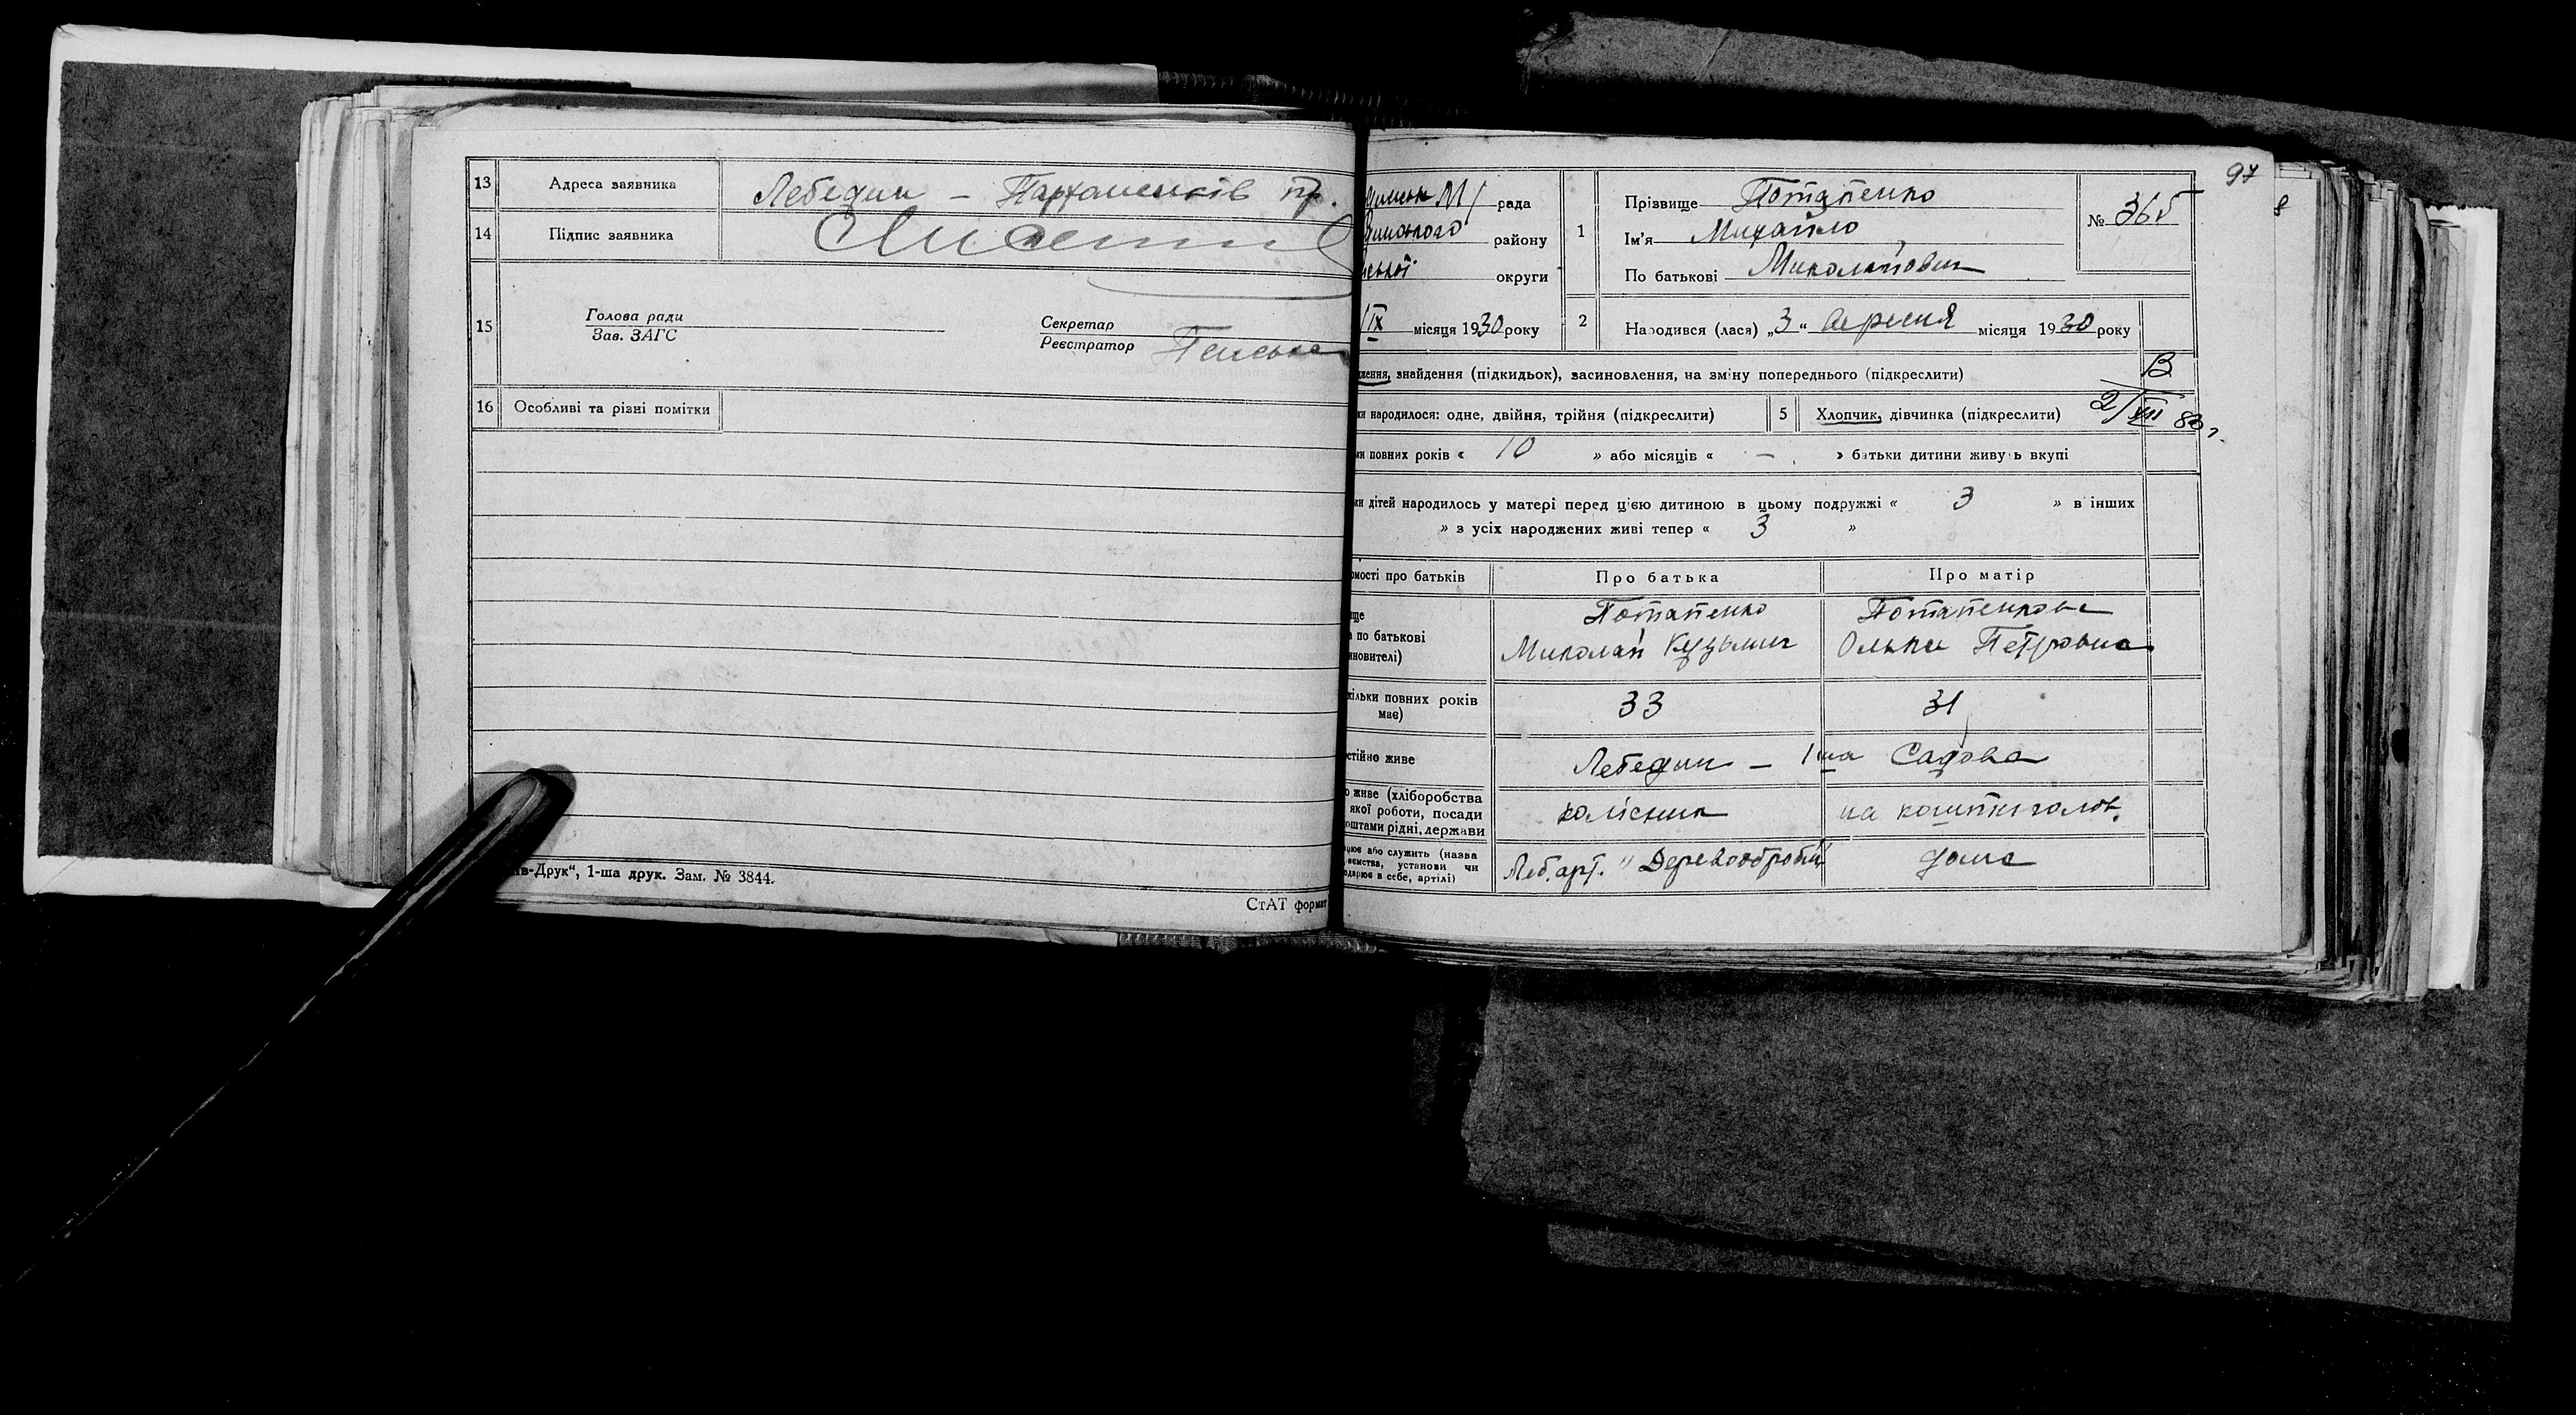 13 Адреса заявника Лебедин – Пархоменків пр.
14 Підпис заявника
15 Голова ради
Зав. ЗАГС
Секретар
Реєстратор
16 Особливі та різні помітки
в-Друк“, 1-ша друк. Зам. № 3844.
СтАТ формат
97
рада
ського району
ської округи
1 Прізвище Потапенко
Ім'я Михайло
По батькові Миколайович
№ 365
IX місяця 1930 року
2 Народився (лася) „3“ вересня місяця 1930 року
ження, знайдення (підкидьок), засиновлення, на зміну попереднього (підкреслити)
В
2/VII 80 г.
ки народилося: одне, двійня, трійня (підкреслити) 5 Хлопчик, дівчинка (підкреслити)
ки повних років « 10 » або місяців « – » батьки дитини живуть вкупі
ки дітей народилось у матері перед цією дитиною в цьому подружжі « 3 » в інших
» з усіх народжених живі тепер « 3 »
омості про батьків Про батька Про матір
ще
а по батькові
новителі)
Потапенко
Миколай Кузьмич
Потапенкова
Ольга Петровна
кільки повних років
має)
33 31
стійно живе Лебедин – 1ша Садова
о живе (хліборобства
якої роботи, посади
оштами рідні, держави
колісник на кошти голов.
цює або служить (назва
ємства, установи чи
одарює в себе, артілі)
Леб. арт. "Деревообробн" дома